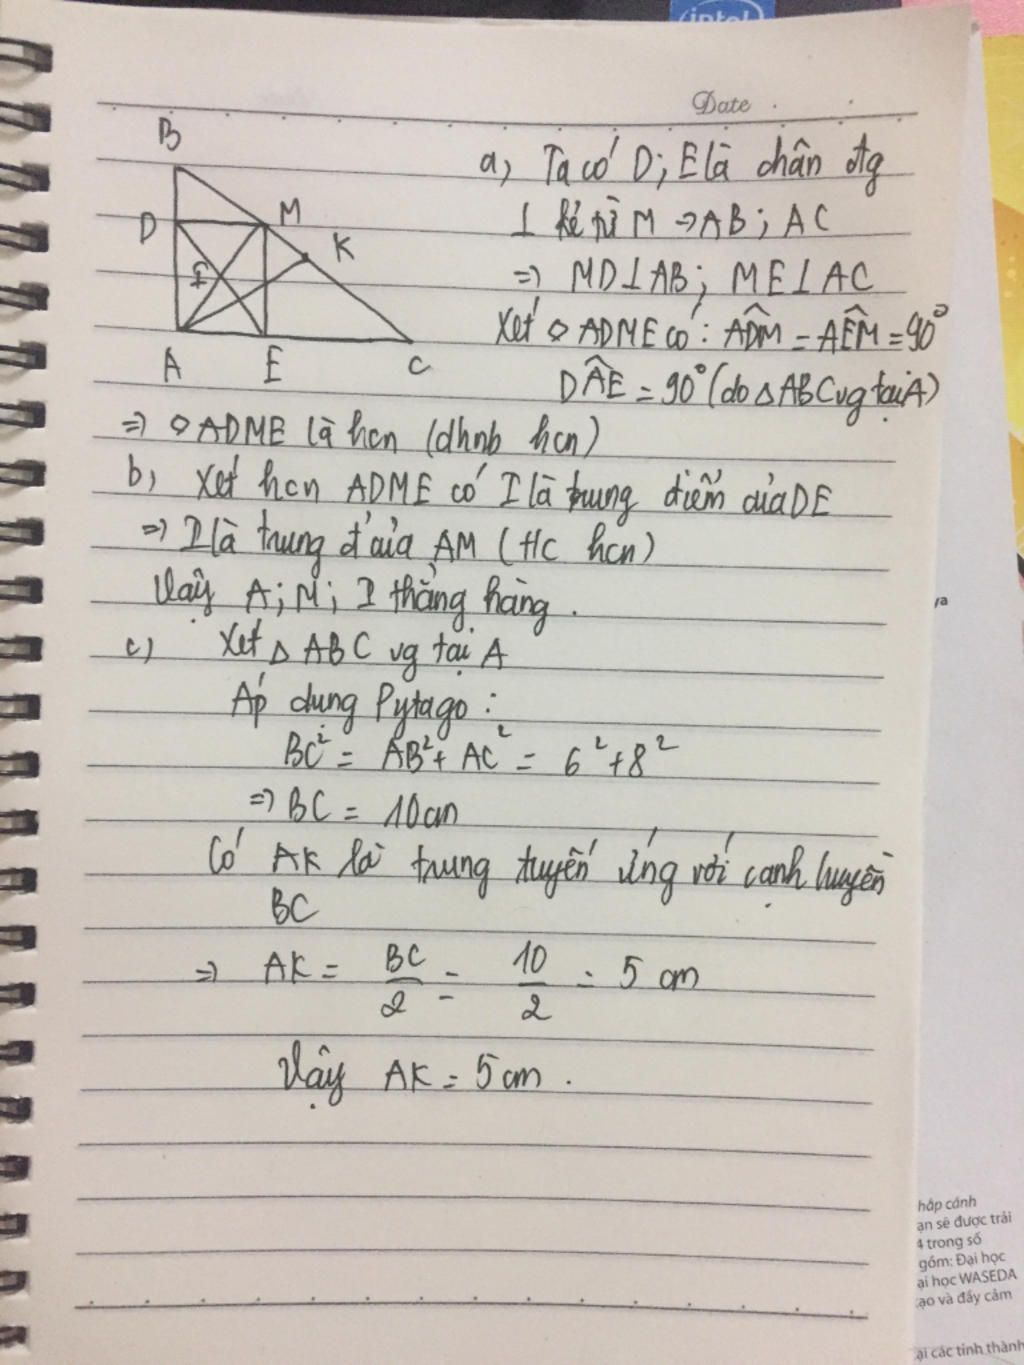 intel
Date
B
D
M
K
I
A
E
C
a, Ta có D; E là chân đg
⊥ kẻ từ M → AB; AC
=> MD⊥AB; ME⊥AC
Xét ◇ ADME có: ADM = AEM = 90°
DAE = 90° (do △ABC vg tại A)
=> ◇ ADME là hcn (dhnb hcn)
b, Xét hcn ADME có I là trung điểm của DE
=> I là trung đ' của AM (t/c hcn)
Vậy A; M; I thẳng hàng.
c) Xét △ ABC vg tại A
Áp dụng Pytago:
BC² = AB² + AC² = 6² + 8²
=> BC = 10cm
Có AK là trung tuyến ứng với cạnh huyền
BC
=> AK = BC/2 = 10/2 = 5 cm
Vậy AK = 5 cm.
ya
hấp cánh
ạn sẽ được trải
4 trong số
gồm: Đại học
ại học WASEDA
tạo và đầy cảm
ại các tỉnh thành